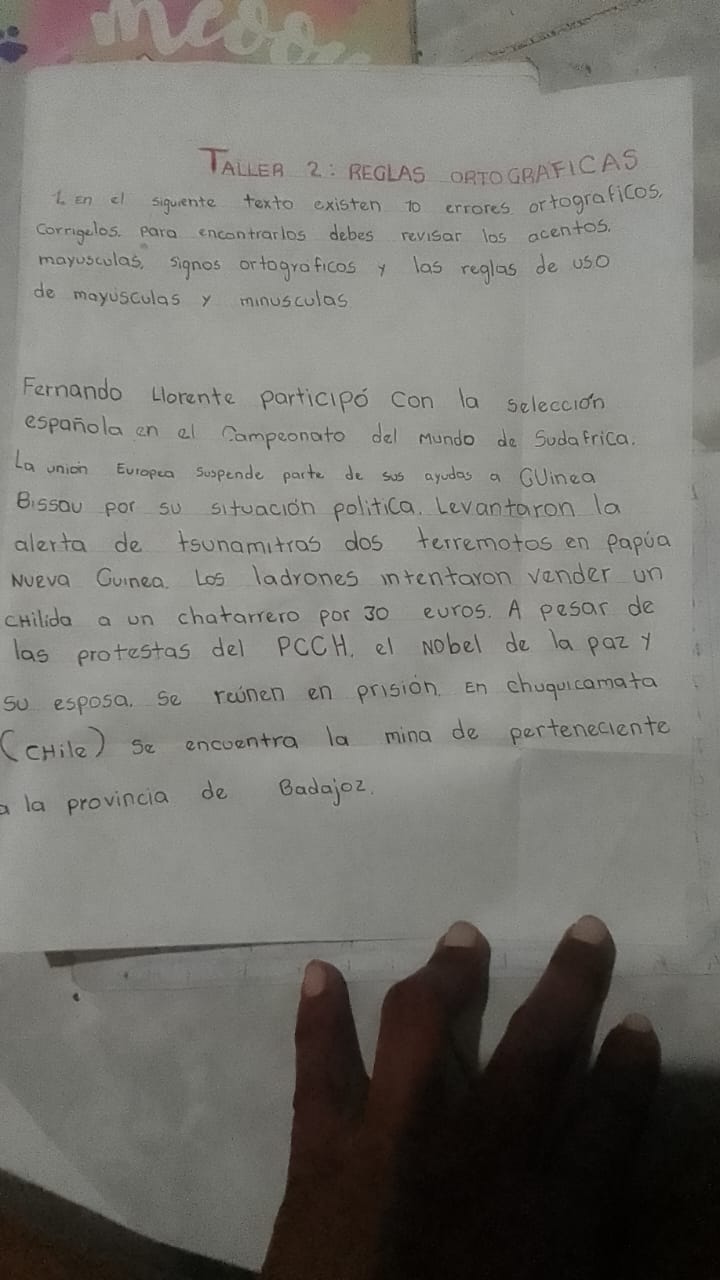 TALLER 2: REGLAS ORTOGRAFICAS
1. En el siguiente texto existen 10 errores ortograficos,
Corrigelos. Para encontrarlos debes revisar los acentos,
mayusculas, signos ortograficos y las reglas de uso
de mayúsculas y minusculas
Fernando Llorente participó con la selección
española en el Campeonato del Mundo de Sudafrica.
La unión Europea suspende parte de sus ayudas a GUinea
Bissau por su situación politica. Levantaron la
alerta de tsunamitras dos terremotos en Papúa
Nueva Guinea. Los ladrones intentaron vender un
cHilida a un chatarrero por 30 euros. A pesar de
las protestas del PCCH, el Nobel de la paz y
su esposa, se reúnen en prisión. En chuquicamata
(cHile) se encuentra la mina de perteneciente
a la provincia de Badajoz.